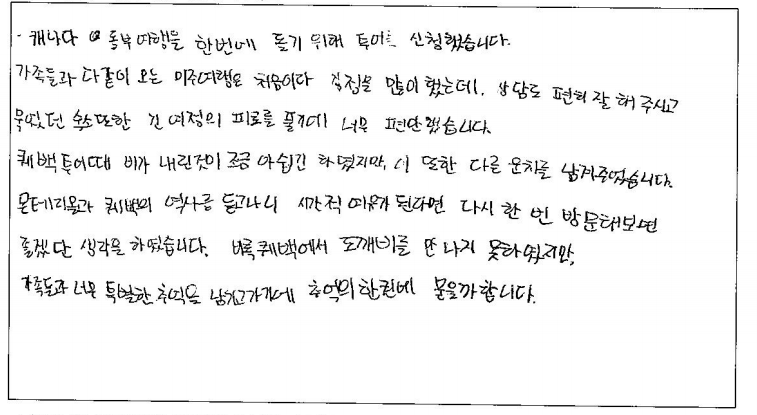 - 캐나다 미 동부여행을 한번에 돌기 위해 투어를 신청했습니다.
가족들과 다같이 오는 미주여행은 처음이다 걱정을 많이 했는데, 상담도 편히 잘 해 주시고
묵었던 숙소또한 긴 여정의 피로를 풀기에 너무 편안했습니다.
퀘백투어때 비가 내린것이 조금 아쉽긴 하였지만, 이 또한 다른 운치를 남겨주었습니다.
몬테리올과 퀘벡의 역사를 듣고나니 시간적 여유가 된다면 다시 한 번 방문해보면
좋겠단 생각을 하였습니다. 비록퀘백에서 도깨비를 만나지 못하였지만,
가족들과 너무 특별한 추억을 남기고가기에 추억의 한켠에 묻을까합니다.